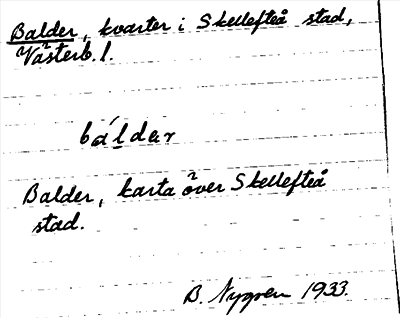 Balder, kvarter i Skellefteå stad,
Västerb. l.
bál̲dar
Balder, karta över Skellefteå
stad.
B. Nygren 1933.